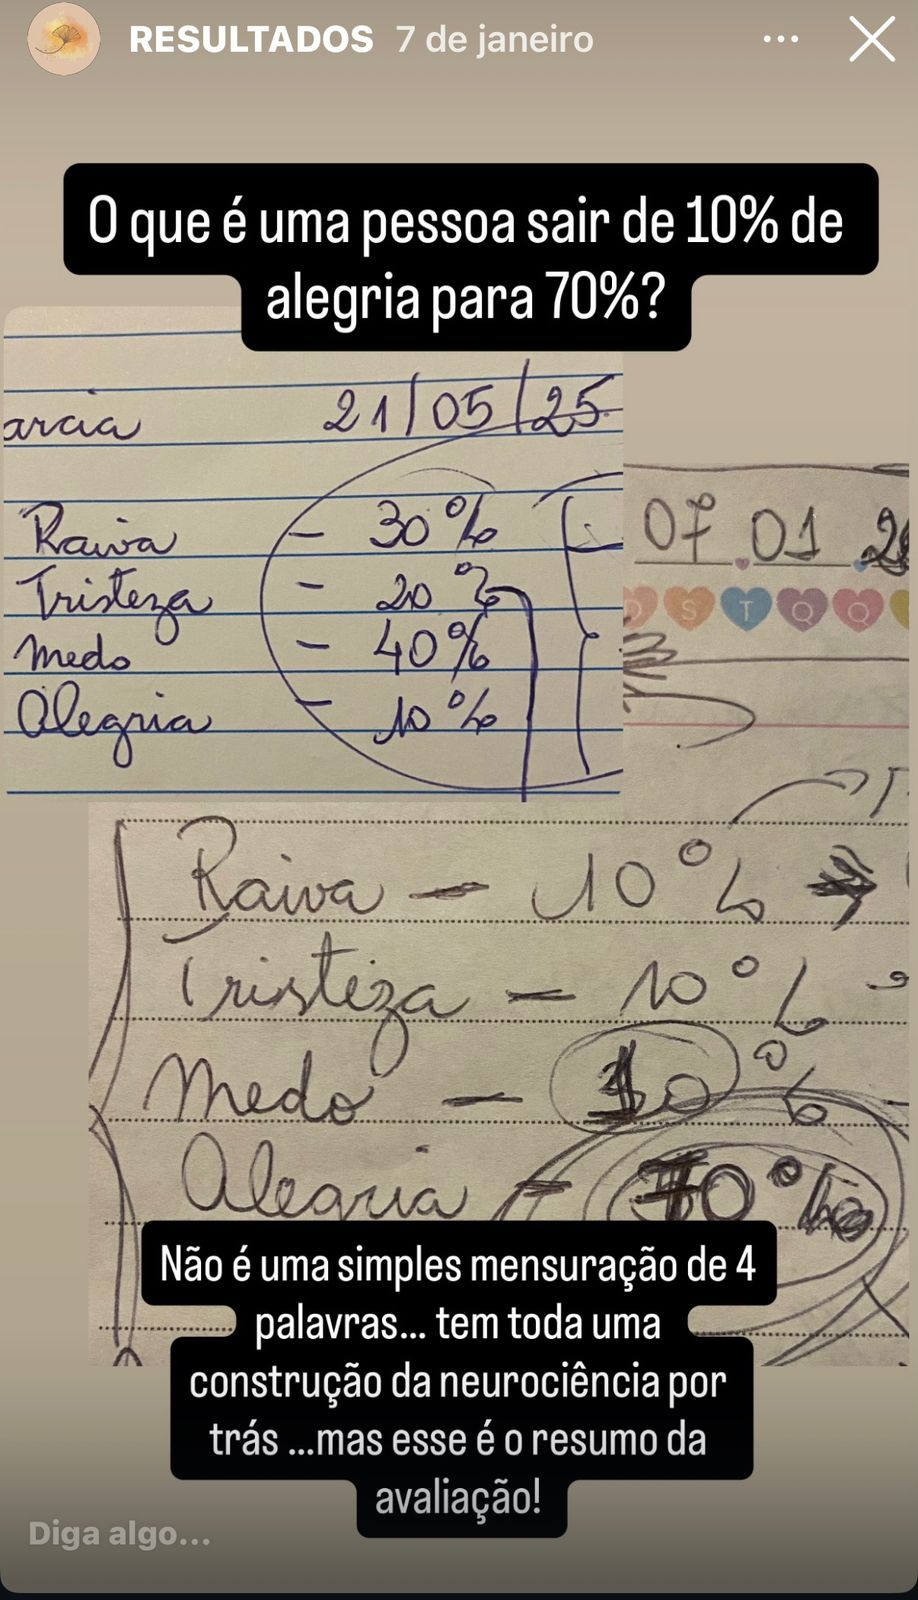 RESULTADOS 7 de janeiro
O que é uma pessoa sair de 10% de
alegria para 70%?
arcia 21/05/25
Raiva - 30%
Tristeza - 20%
Medo - 40%
Alegria - 10%
07.01.2
D S T Q Q
Raiva - 10%
Tristeza - 10%
Medo - 10%
Alegria - 70%
Não é uma simples mensuração de 4
palavras... tem toda uma
construção da neurociência por
trás ...mas esse é o resumo da
avaliação!
Diga algo...